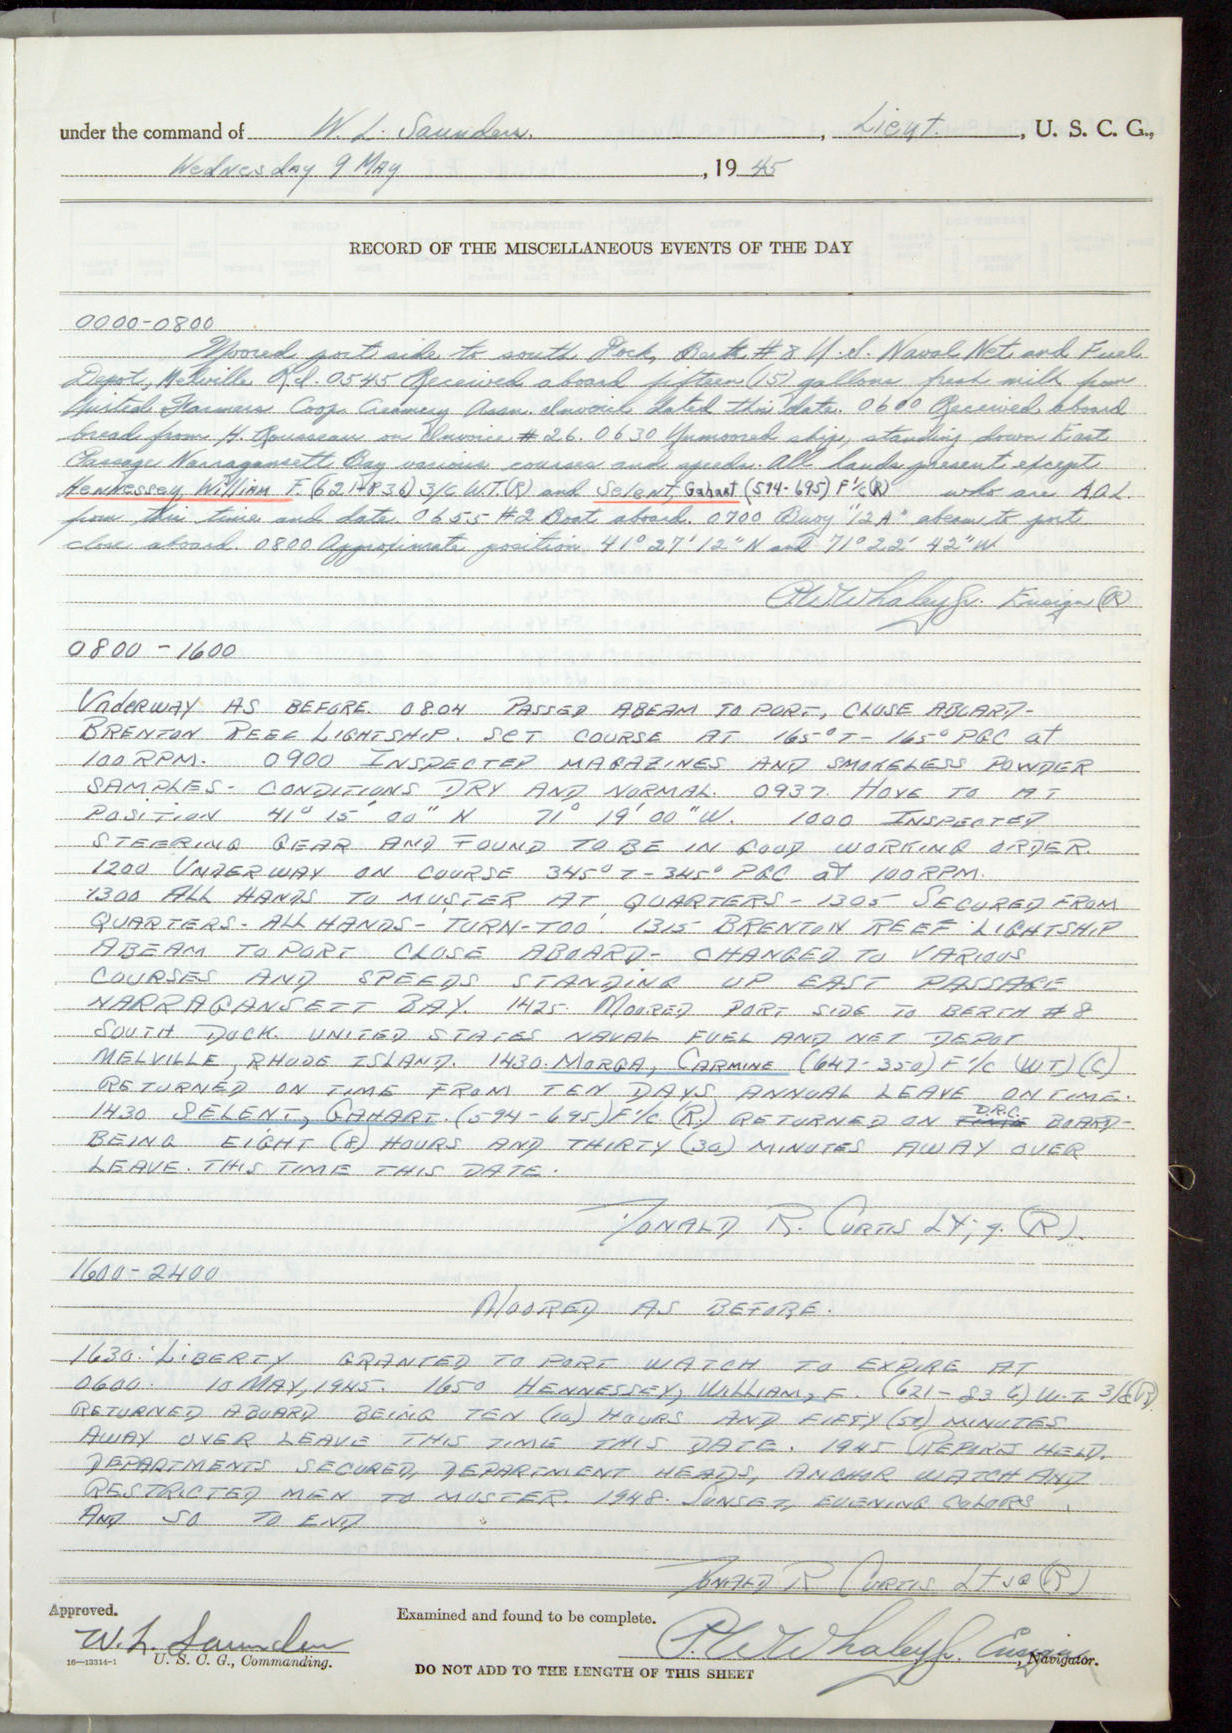 under the command of W. L. Saunders, Lieut., U. S. C. G.,
Wednesday 9 May, 1945
RECORD OF THE MISCELLANEOUS EVENTS OF THE DAY
0000-0800
Moored port side to south Dock, Berth #8 U.S. Naval Net and Fuel
Depot, Melville R.I. 0545 Received aboard fifteen (15) gallons fresh milk from
United Farmers Coop. Creamery Assn. Invoice dated this date. 0600 Received aboard
bread from H. Rousseau on Invoice #26. 0630 Unmoored ship, standing down East
Passage Narragansett Bay various courses and speeds. All hands present except
Hennessey, William F. (621-836) 3/c W.T.(R) and Selent, Gahart (594-695) F 1/c (R) who are A.O.L.
from this time and date. 0655 #2 Boat aboard. 0700 Buoy "12A" abeam to port
close aboard. 0800 Approximate position 41° 27' 12" N and 71° 22' 42" W.
P.W. Whaley Jr. Ensign (R)
0800 - 1600
UNDERWAY AS BEFORE. 0804 PASSED ABEAM TO PORT, CLOSE ABOARD-
BRENTON REEF LIGHTSHIP. SET COURSE AT 165° T - 165° PGC at
100 RPM. 0900 INSPECTED MAGAZINES AND SMOKELESS POWDER
SAMPLES - CONDITIONS DRY AND NORMAL. 0937. HOVE TO AT
POSITION 41° 15' 00" N 71° 19' 00" W. 1000 INSPECTED
STEERING GEAR AND FOUND TO BE IN GOOD WORKING ORDER.
1200 UNDERWAY ON COURSE 345° T - 345° PGC at 100 RPM.
1300 ALL HANDS TO MUSTER AT QUARTERS - 1305 SECURED FROM
QUARTERS - ALL HANDS - 'TURN-TOO'. 1315 BRENTON REEF LIGHTSHIP
ABEAM TO PORT CLOSE ABOARD - CHANGED TO VARIOUS
COURSES AND SPEEDS STANDING UP EAST PASSAGE
NARRAGANSETT BAY. 1425. MOORED PORT SIDE TO BERTH #8
SOUTH DOCK. UNITED STATES NAVAL FUEL AND NET DEPOT
MELVILLE, RHODE ISLAND. 1430. MORGA, CARMINE (647-350) F 1/c (WT) (C)
RETURNED ON TIME FROM TEN DAYS ANNUAL LEAVE ON TIME.
1430 SELENT, GAHART. (594-695) F 1/c (R) RETURNED ON D.R.C. BOARD-
BEING EIGHT (8) HOURS AND THIRTY (30) MINUTES AWAY OVER
LEAVE. THIS TIME THIS DATE.
DONALD R. CURTIS Lt, j.g. (R).
1600-2400
MOORED AS BEFORE.
1630. LIBERTY GRANTED TO PORT WATCH TO EXPIRE AT
0600. 10 MAY, 1945. 1650 HENNESSEY, WILLIAM, F. (621-836) W.T. 3/c (R)
RETURNED ABOARD BEING TEN (10) HOURS AND FIFTY (50) MINUTES
AWAY OVER LEAVE THIS TIME THIS DATE. 1945 REPORTS HELD.
DEPARTMENTS SECURED, DEPARTMENT HEADS, ANCHOR WATCH AND
RESTRICTED MEN TO MUSTER. 1948. SUNSET, EVENING COLORS.
AND SO TO END
DONALD R CURTIS Lt jg (R)
Approved. Examined and found to be complete.
W. L. Saunders P.W. Whaley Jr. Ensign, Navigator.
16—13314-1 U. S. C. G., Commanding.
DO NOT ADD TO THE LENGTH OF THIS SHEET